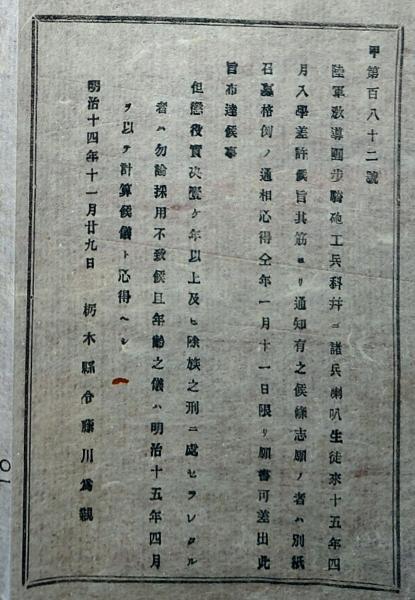 甲第百八十二號
陸軍敎導團步騎砲工兵科幷ニ諸兵喇叭生徒來十五年四
月入學差許候旨其筋ヨリ通知有之候條志願ノ者ハ別紙
召募格例ノ通相心得仝年一月十一日限リ願書可差出此
旨布達候事
但懲役實决壹ケ年以上及ヒ除族之刑ニ處セラレタル
者ハ勿論採用不致候且年齡之儀ハ明治十五年四月
ヲ以テ計算候儀ト心得ヘシ
明治十四年十一月廿九日 栃木縣令藤川爲親